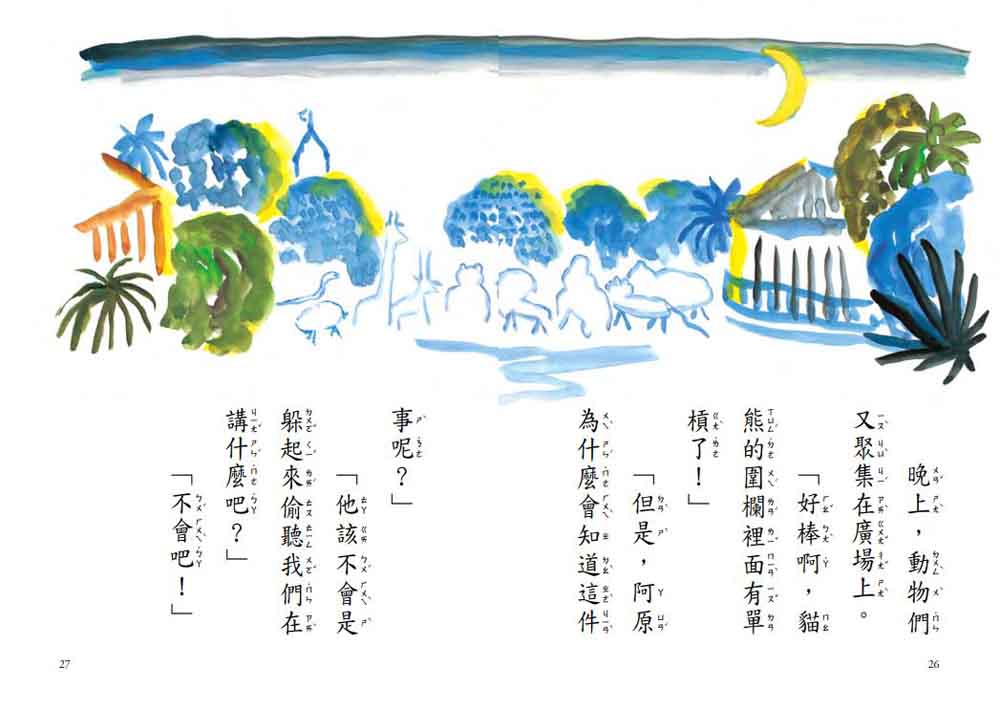 晚上，動物們
又聚集在廣場上。
「好棒啊，貓
熊的圍欄裡面有單
槓了！」
「但是，阿原
為什麼會知道這件
事呢？」
「他該不會是
躲起來偷聽我們在
講什麼吧？」
「不會吧！」
26
27